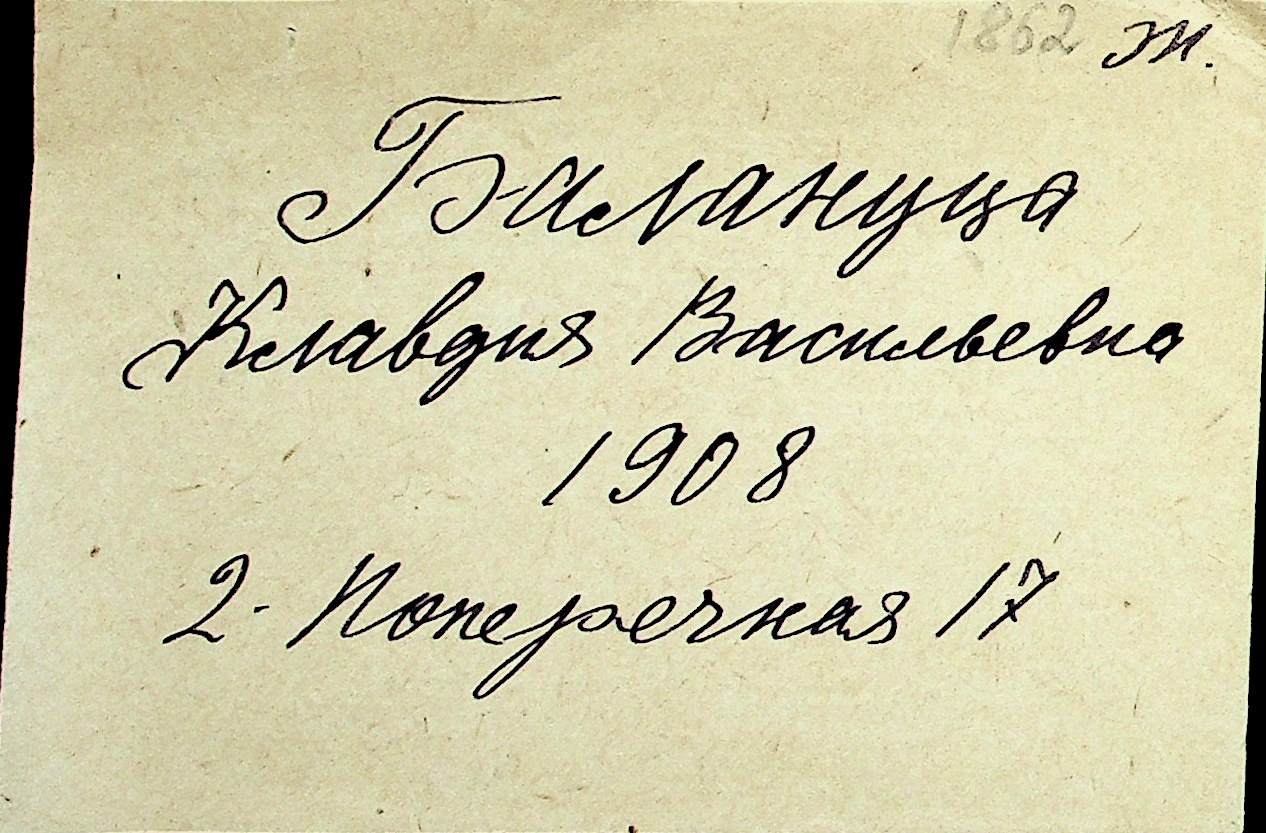 1862 Ж.
Балануца
Клавдия Васильевна
1908
2. Поперечная 17